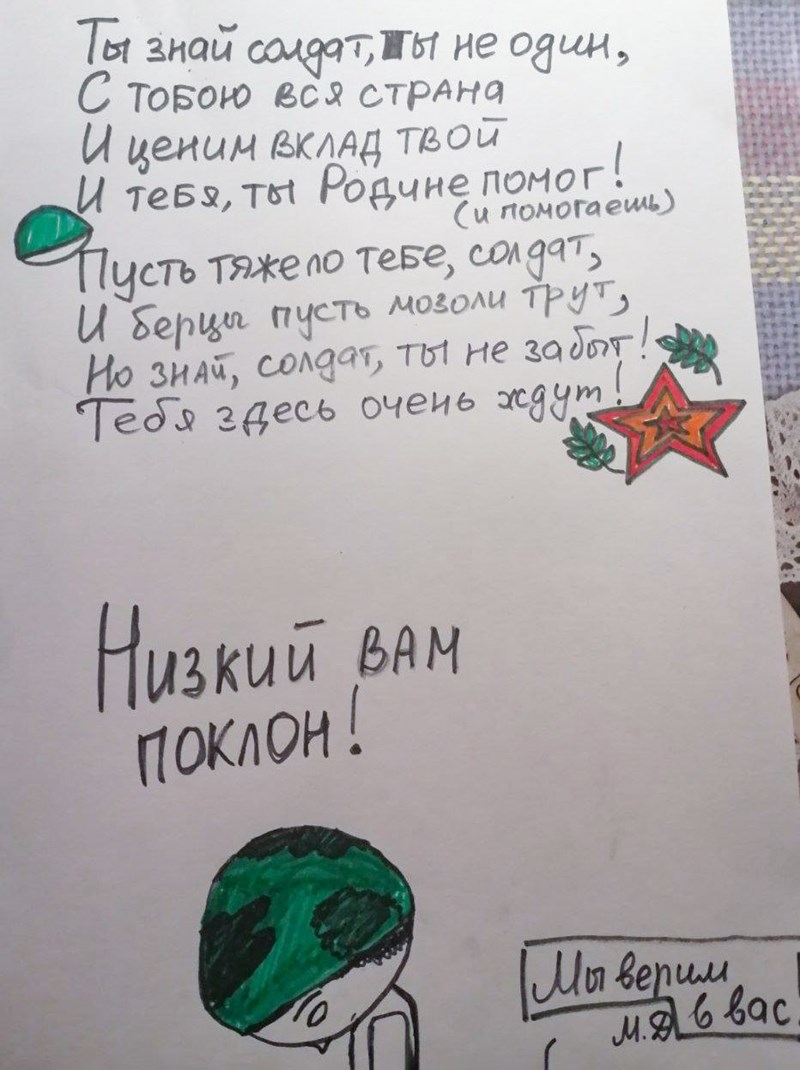 Ты знай солдат, ты не один,
С тобою вся страна
И ценим вклад твой
И тебя, ты Родине помог!
(и помогаешь)
Пусть тяжело тебе, солдат,
И берцы пусть мозоли трут,
Но знай, солдат, ты не забыт!
Тебя здесь очень ждут!
Низкий вам
поклон!
Мы верим
в вас
М.Д